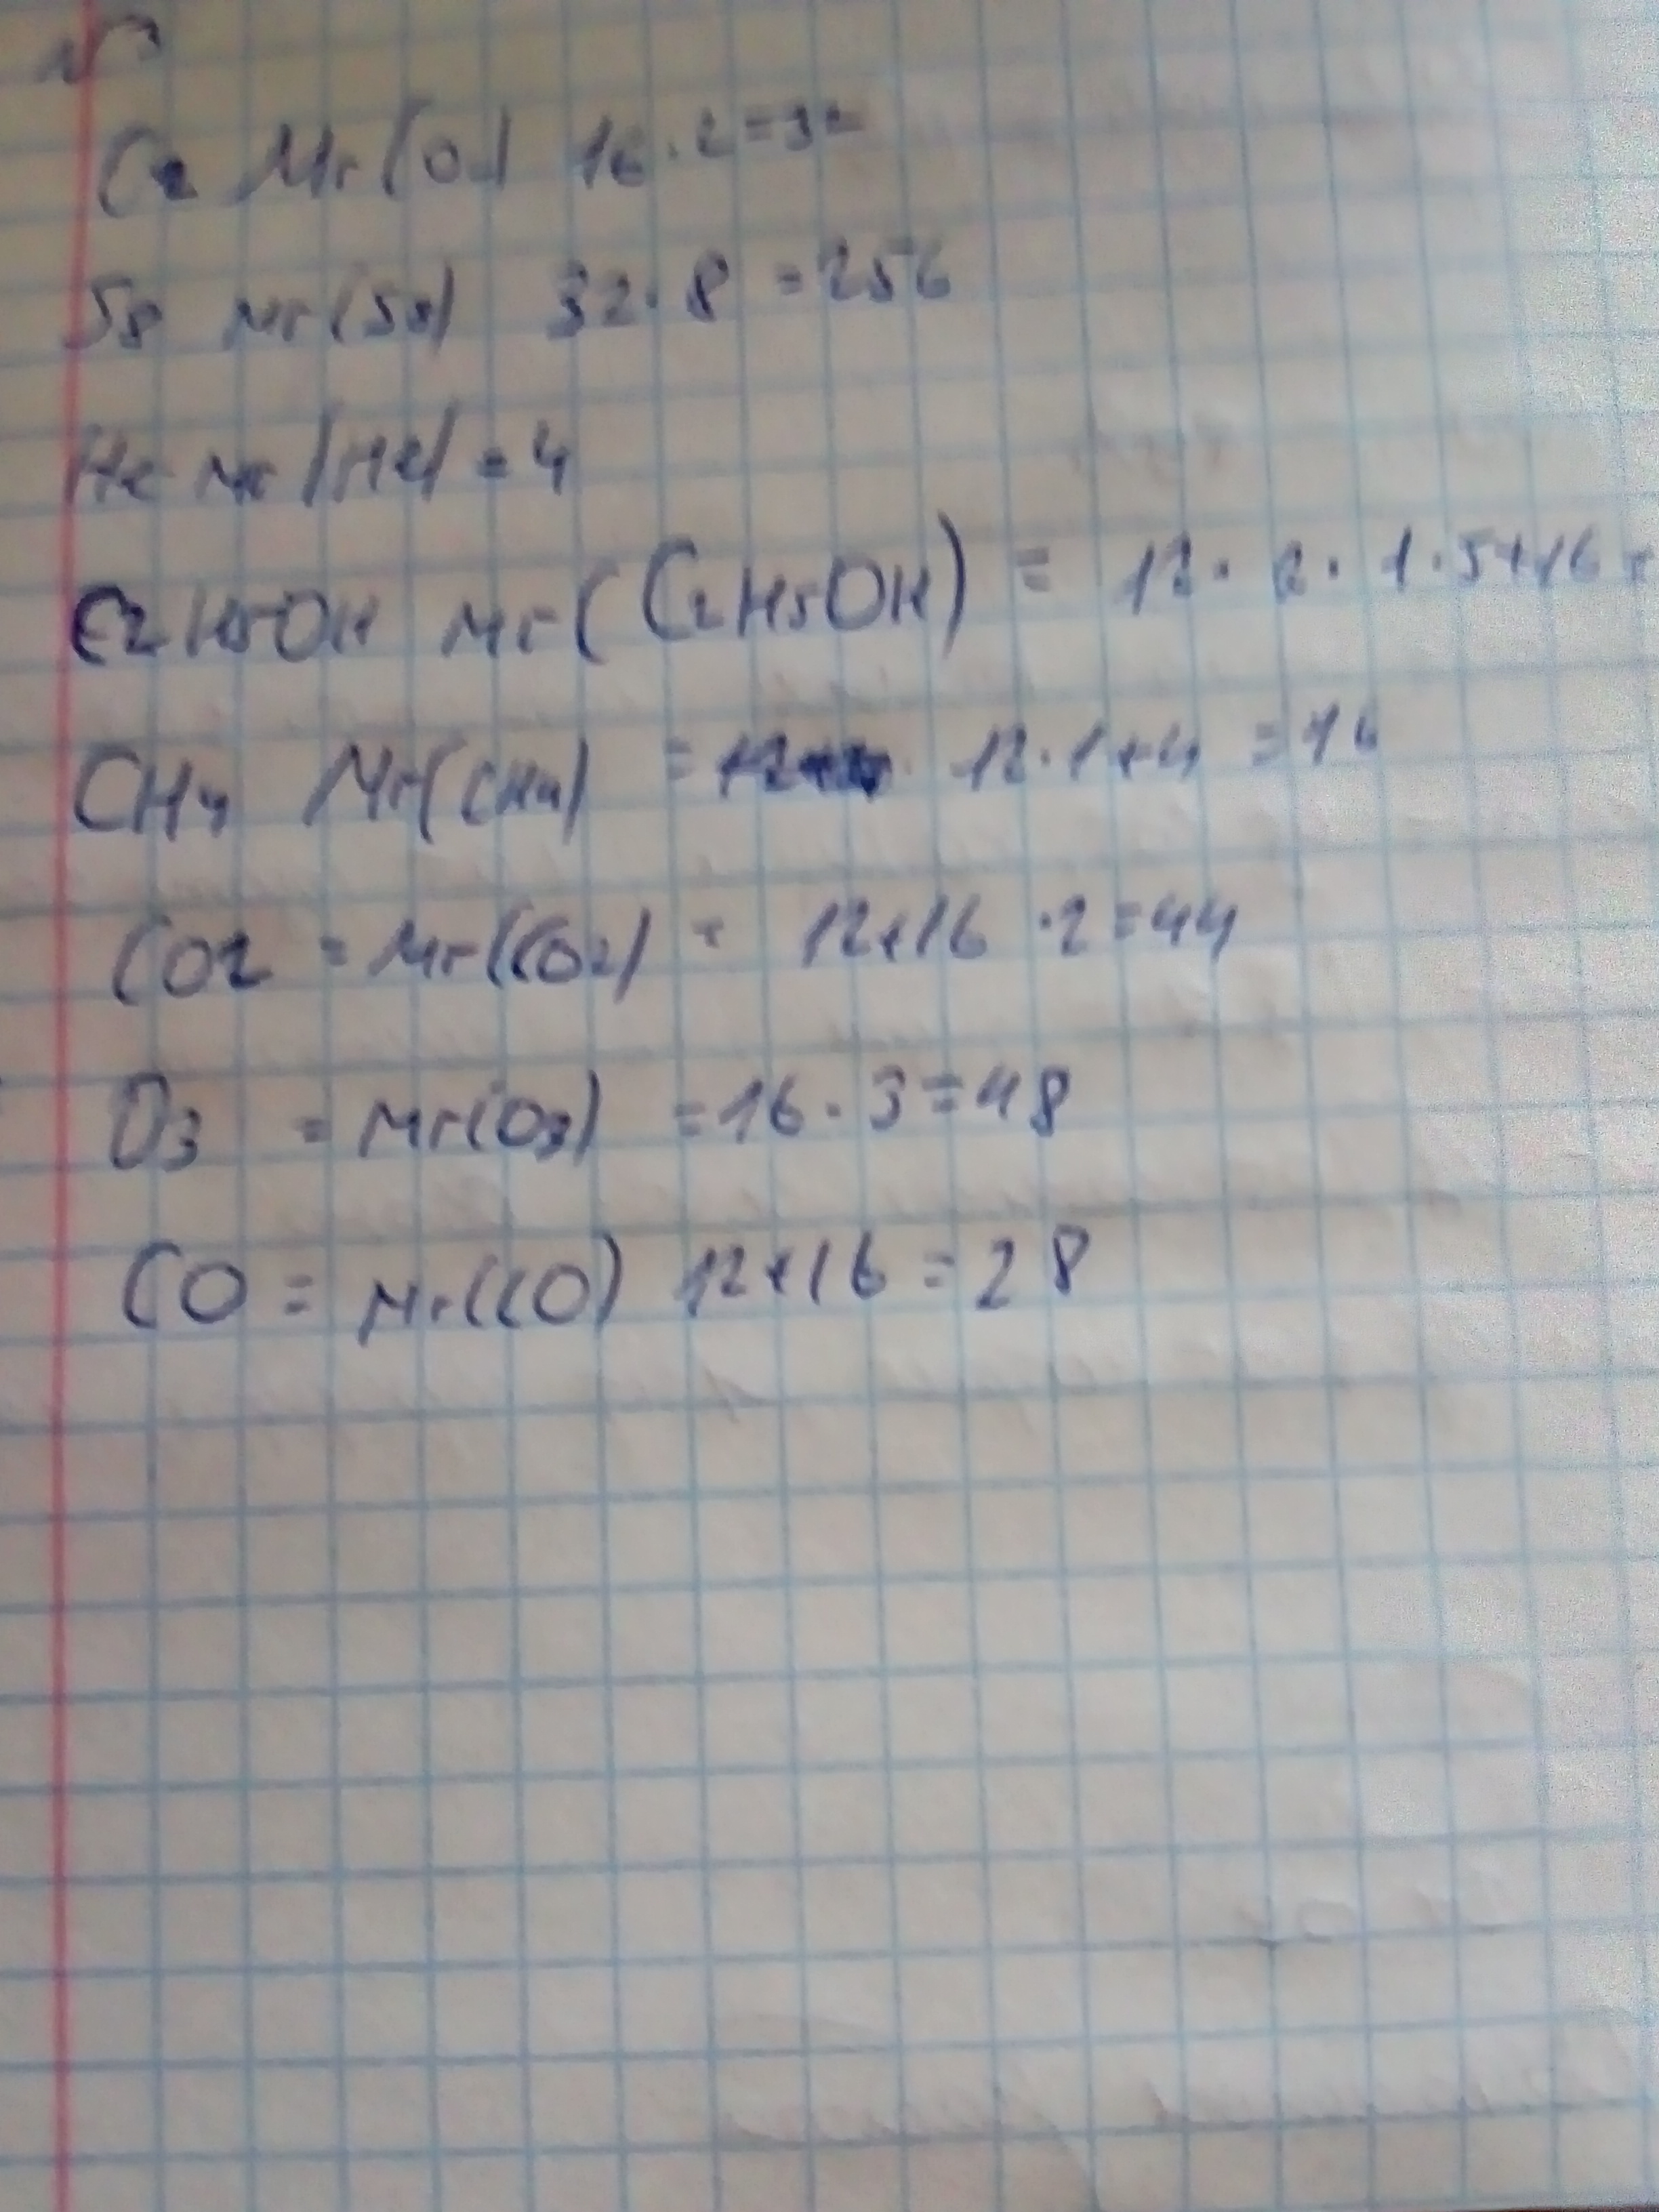 N3
C2 Mr(O2) 16·2=32
S8 Mr(S8) 32·8=256
He Mr(He)=4
C2H5OH Mr(C2H5OH) = 12·2·1·5+16=
CH4 Mr(CH4) = 12·1+4=16
CO2 = Mr(CO2) = 12+16·2=44
O3 = Mr(O3) =16·3=48
CO = Mr(CO) 12+16=28